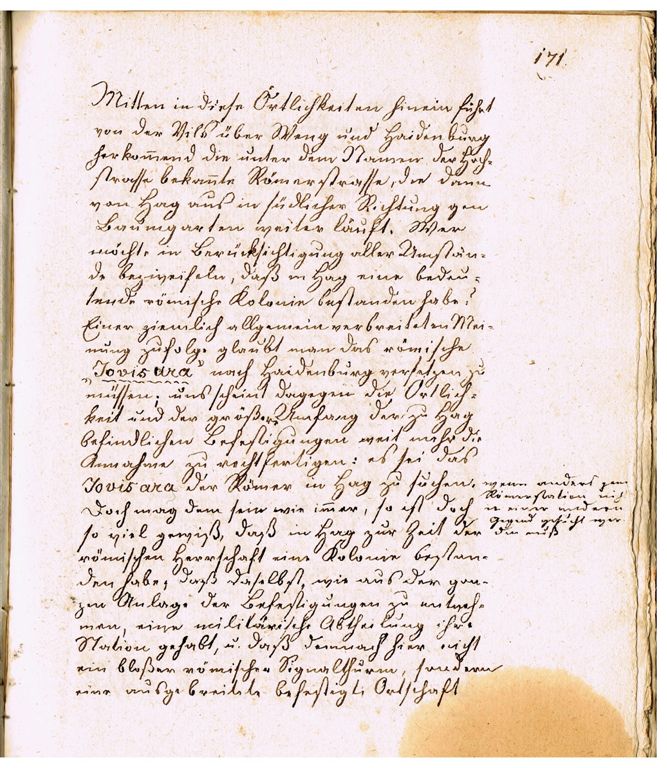 171.
Mitten in diese Örtlichkeiten hinein führt
von der Vils über Weng und Haidenburg
herkom̅end die unter dem Namen der Hoch-
strasse bekan̅te Römerstrasse, die dann
von Hag aus in südlicher Richtung gen
Baumgarten weiter läuft. Wer
möchte in Berücksichtigung aller Umstän-
de bezweifeln, daß in Hag eine bedeu-
tende römische Kolonie bestanden habe?
Einer ziemlich allgemein verbreiteten Mei-
nung zufolge glaubt man das römische
„Jovisara" nach Haidenburg versetzen zu
müssen; uns scheint dagegen die Örtlich-
keit und der größere Umfang der zu Hag
befindlichen Befestigungen weit mehr die
Annahme zu rechtfertigen: es sei das
Jovisara der Römer in Hag zu suchen,
wenn anders jene
Römerstation nicht
in einer andern
Gegend gesucht wer-
den muß
Doch mag dem sein wie immer, so ist doch
so viel gewiß, daß in Hag zur Zeit der
römischen Herrschaft eine Kolonie bestan-
den habe; daß daselbst, wie aus der gan-
zen Anlage der Befestigungen zu entneh-
men, eine militärische Abtheilung ihre
Station gehabt, u. daß demnach hier nicht
ein bloßer römischer Signalthurm, sondern
eine ausgebreitete befestigte Ortschaft